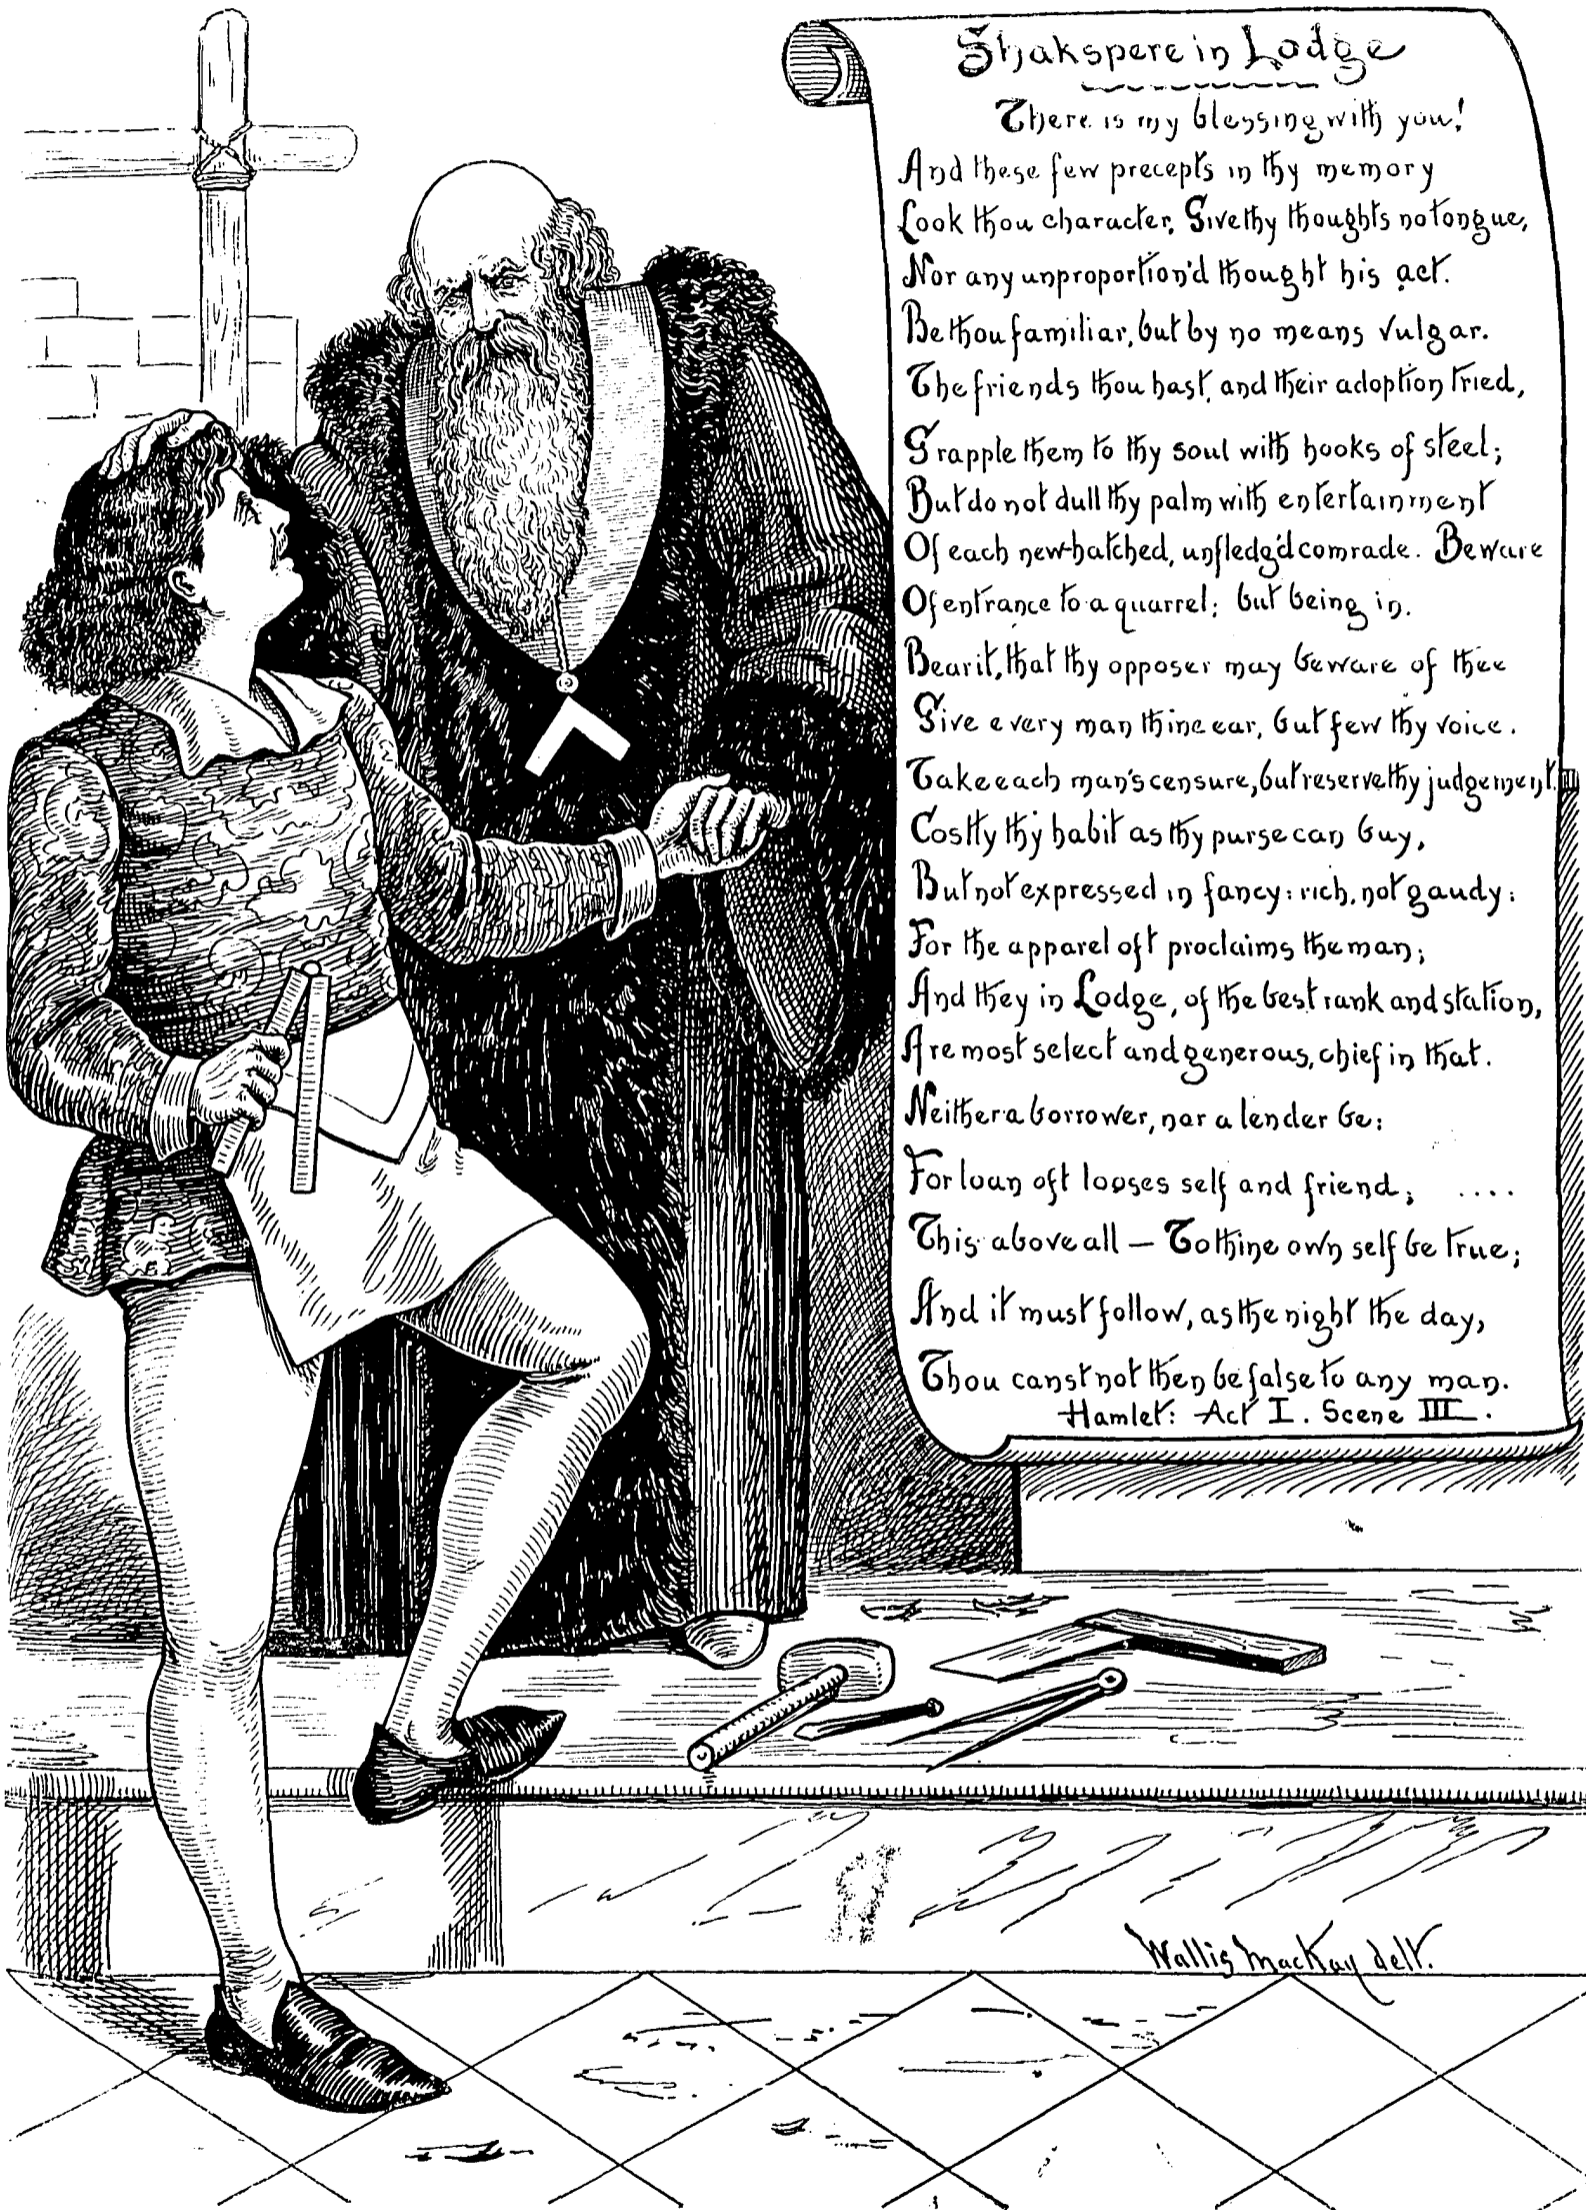 Shakspere in Lodge
There is my blessing with you!
And these few precepts in thy memory
Look thou character, Give thy thoughts no tongue,
Nor any unproportion'd thought his act.
Be thou familiar, but by no means vulgar.
The friends thou hast, and their adoption tried,
Grapple them to thy soul with hooks of steel;
But do not dull thy palm with entertainment
Of each new-hatched, unfledg'd comrade. Beware
Of entrance to a quarrel; but being in.
Bear it, that thy opposer may beware of thee
Give every man thine ear, but few thy voice.
Take each man's censure, but reserve thy judgement.
Costly thy habit as thy purse can buy,
But not expressed in fancy: rich, not gaudy:
For the apparel oft proclaims the man;
And they in Lodge, of the best rank and station,
Are most select and generous, chief in that.
Neither a borrower, nor a lender be:
For loan oft looses self and friend; ....
This above all — To thine own self be true;
And it must follow, as the night the day,
Thou canst not then be false to any man.
Hamlet: Act I. Scene III.
Wallis Mackay delt.